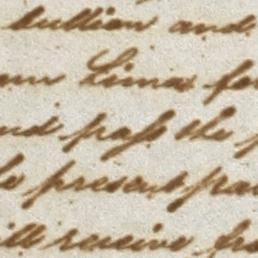 bullion and
Lima for
and pass the
present
will receive